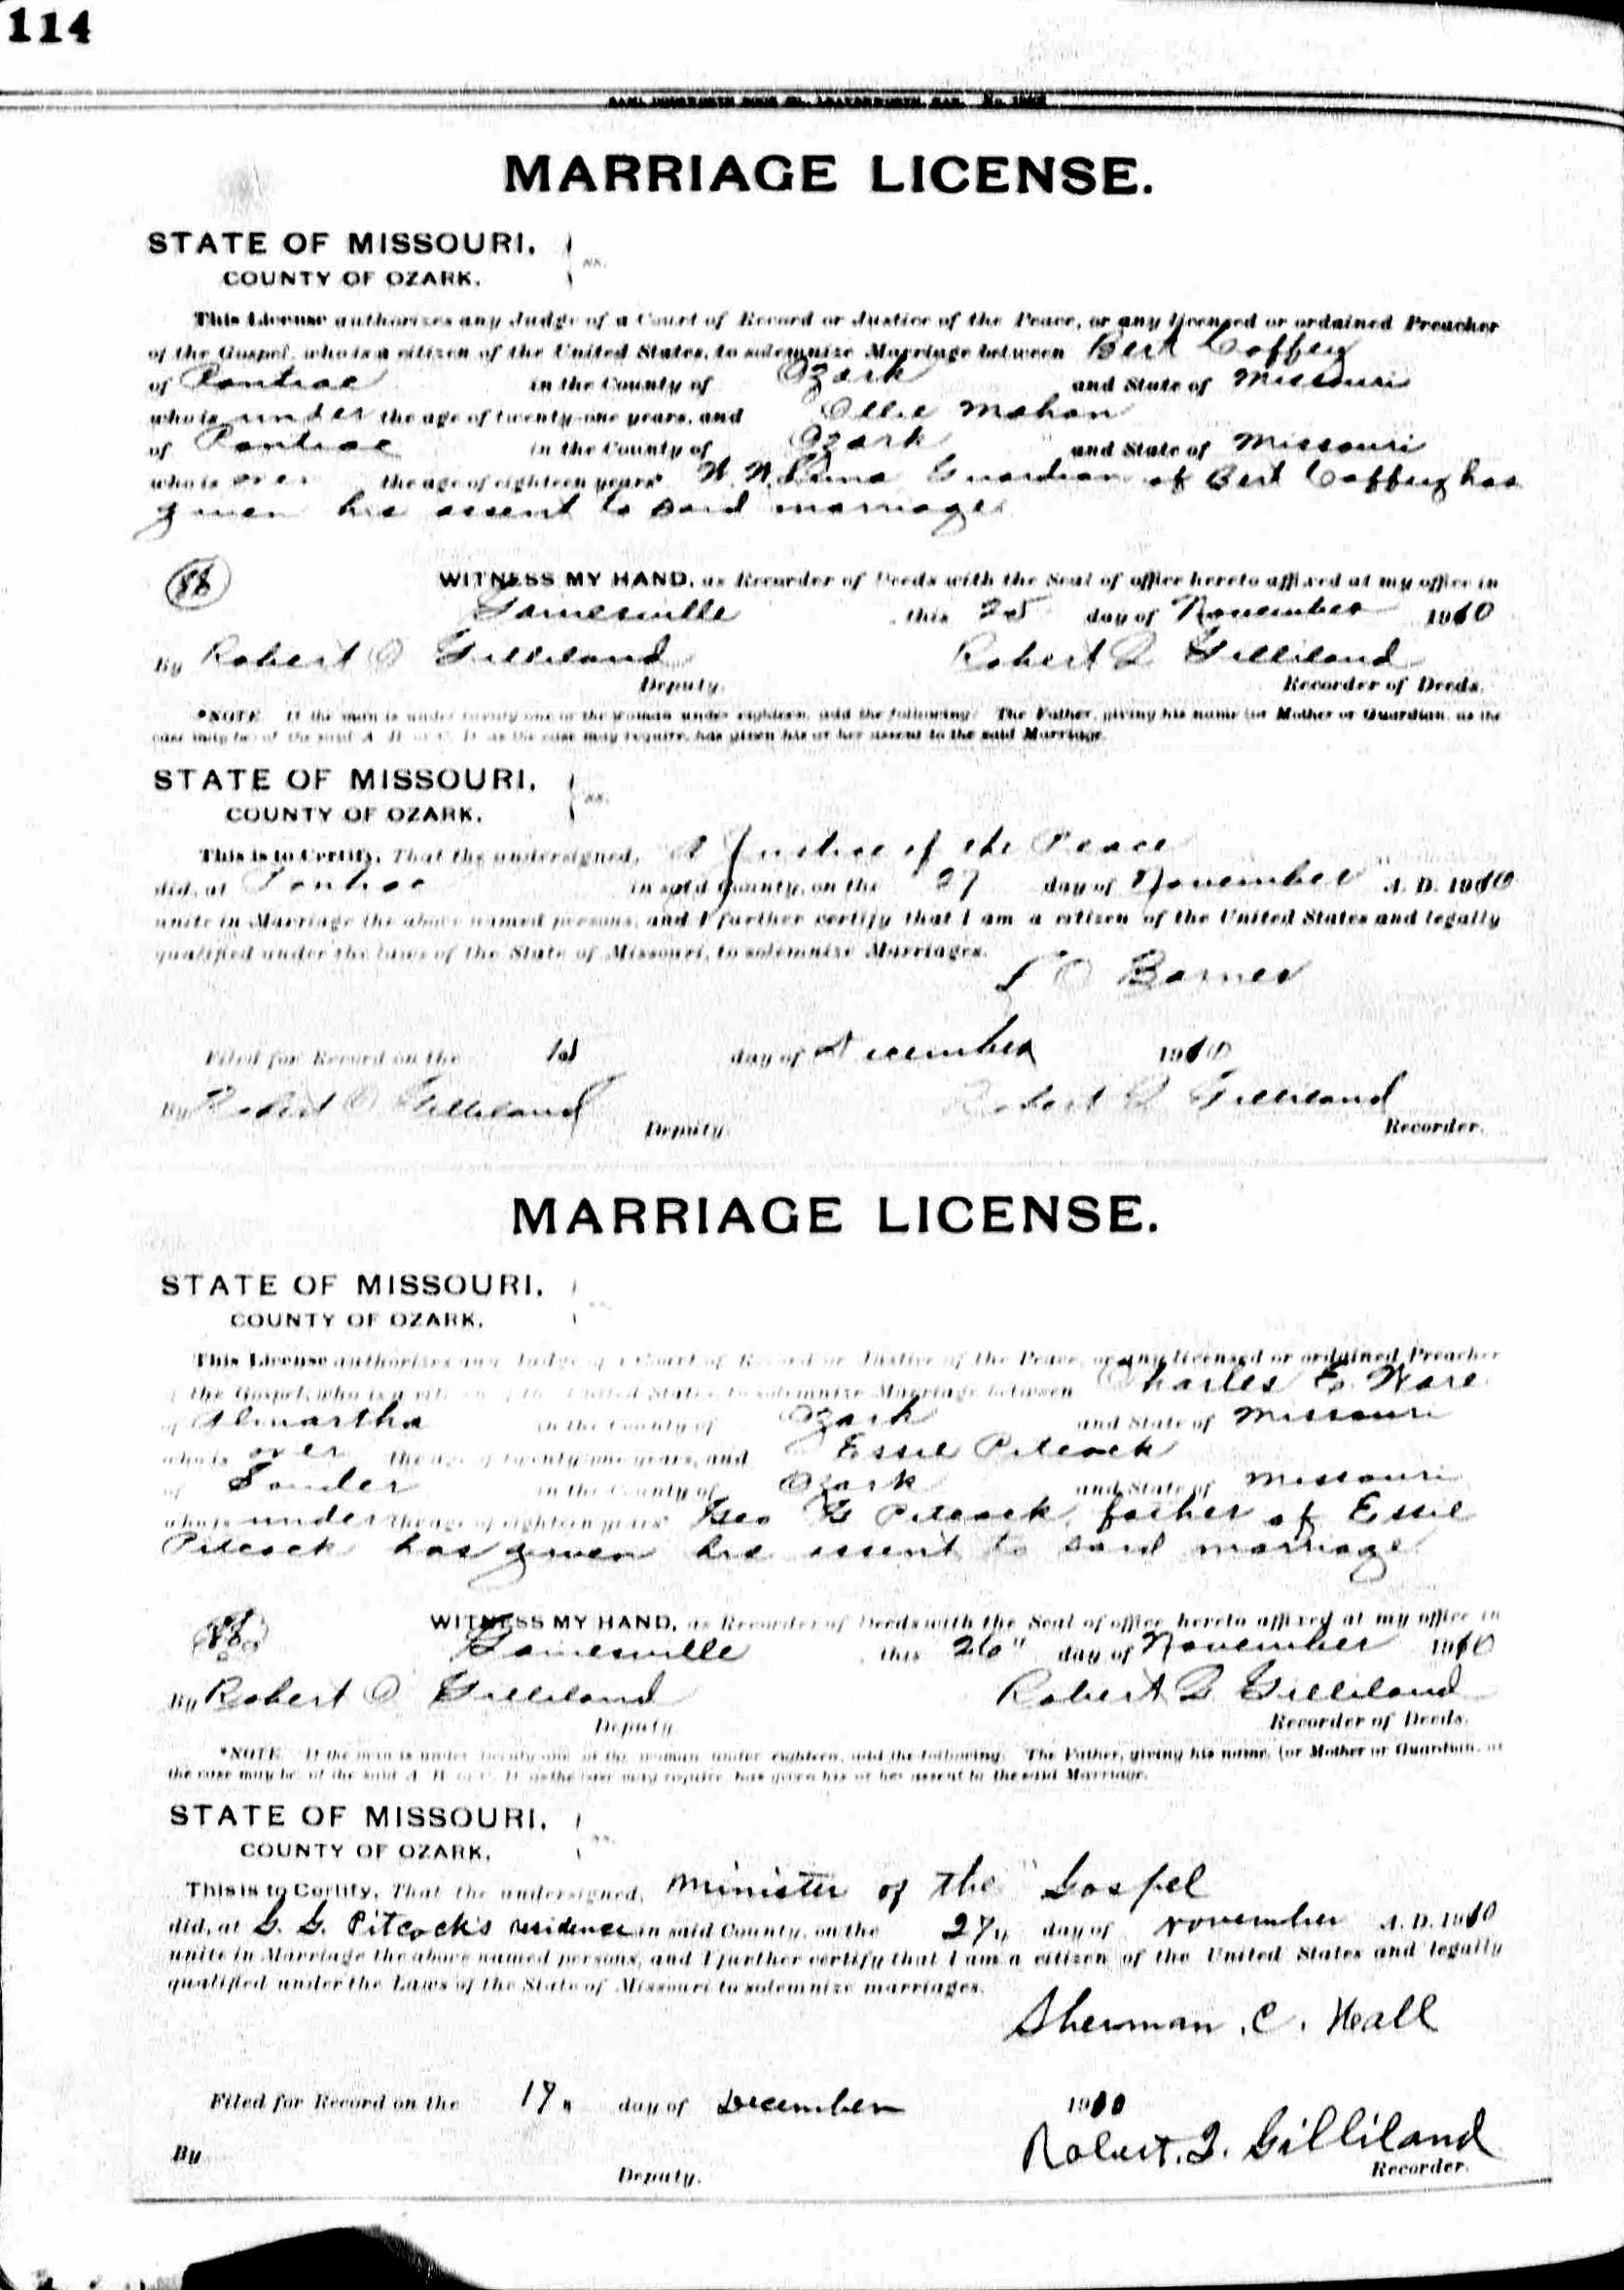 114
MARRIAGE LICENSE.
STATE OF MISSOURI,
COUNTY OF OZARK. ss.
This License authorizes any Judge of a Court of Record or Justice of the Peace, or any licensed or ordained Preacher
of the Gospel, who is a citizen of the United States, to solemnize Marriage between Bert Coffey
of Pontiac in the County of Ozark and State of Missouri
who is under the age of twenty-one years, and Ollie Mahan
of Pontiac in the County of Ozark and State of Missouri
who is over the age of eighteen years* W. W. Guardian of Bert Coffey has
given his assent to said marriage
WITNESS MY HAND, as Recorder of Deeds with the Seal of office hereto affixed at my office in
Gainesville this 25 day of November 1910
By Robert O Gilliland Robert Q Gilliland
Deputy. Recorder of Deeds.
*NOTE If the man is under twenty-one or the woman under eighteen, add the following: The Father, giving his name (or Mother or Guardian, as the
case may be) of the said A. B. or C. D. as the case may require, has given his or her assent to the said Marriage.
STATE OF MISSOURI,
COUNTY OF OZARK. ss.
This is to Certify, That the undersigned, A Justice of the Peace
did, at Pontiac in said County, on the 27 day of November A. D. 1910
unite in Marriage the above named persons, and I further certify that I am a citizen of the United States and legally
qualified under the laws of the State of Missouri, to solemnize Marriages.
L O Barnes
Filed for Record on the 1st day of December 1910
By Robert O Gilliland Robert Q Gilliland
Deputy. Recorder.
MARRIAGE LICENSE.
STATE OF MISSOURI,
COUNTY OF OZARK.
This License authorizes any Judge of a Court of Record or Justice of the Peace, or any licensed or ordained Preacher
of the Gospel, who is a citizen of the United States, to solemnize Marriage between Charles E. Ware
of Almartha in the County of Ozark and State of Missouri
who is over the age of twenty-one years, and Essie Pitcock
of Souder in the County of Ozark and State of Missouri
who is under the age of eighteen years* Geo G Pitcock father of Essie
Pitcock has given his assent to said marriage
WITNESS MY HAND, as Recorder of Deeds with the Seal of office hereto affixed at my office in
Gainesville this 26" day of November 1910
By Robert O Gilliland Robert Q Gilliland
Deputy Recorder of Deeds.
*NOTE If the man is under twenty-one or the woman under eighteen, add the following: The Father, giving his name, (or Mother or Guardian, as
the case may be) of the said A. B. or C. D. as the case may require has given his or her assent to the said Marriage.
STATE OF MISSOURI,
COUNTY OF OZARK.
This is to Certify, That the undersigned, Minister of the Gospel
did, at G. G. Pitcock's residence in said County, on the 27" day of November A. D. 1910
unite in Marriage the above named persons, and I further certify that I am a citizen of the United States and legally
qualified under the Laws of the State of Missouri to solemnize marriages.
Sherman. C. Hall
Filed for Record on the day of December 1910
By Robert. Q. Gilliland
Deputy. Recorder.